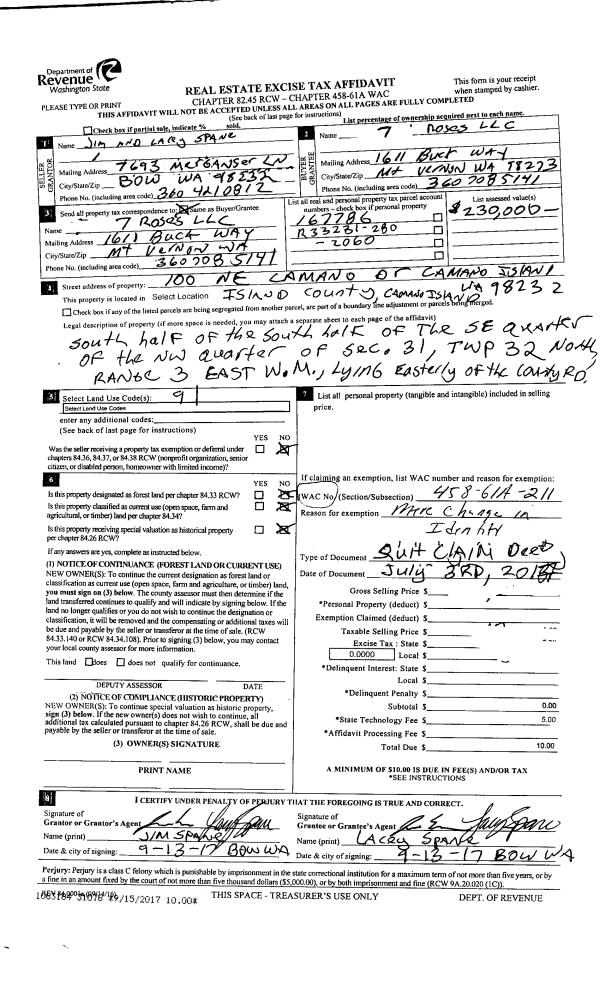 Department of
Revenue
Washington State
REAL ESTATE EXCISE TAX AFFIDAVIT
This form is your receipt
when stamped by cashier.
PLEASE TYPE OR PRINT
CHAPTER 82.45 RCW – CHAPTER 458-61A WAC
THIS AFFIDAVIT WILL NOT BE ACCEPTED UNLESS ALL AREAS ON ALL PAGES ARE FULLY COMPLETED
(See back of last page for instructions)
Check box if partial sale, indicate % sold.
List percentage of ownership acquired next to each name.
1 Name JIM AND LACEY SPANE
2 Name 7 ROSES LLC
SELLER GRANTOR
BUYER GRANTEE
Mailing Address 7693 MERGANSER LN
Mailing Address 1611 BUCK WAY
City/State/Zip BOW WA 98232
City/State/Zip Mt VERNON WA 98273
Phone No. (including area code) 360 4210812
Phone No. (including area code) 360 708 5141
3 Send all property tax correspondence to: Same as Buyer/Grantee
List all real and personal property tax parcel account
numbers – check box if personal property
List assessed value(s)
Name 7 ROSES LLC
167786
$230,000 –
Mailing Address 1611 BUCK WAY
R33231-280
City/State/Zip Mt VERNON WA
- 2060
Phone No. (including area code) 360 708 5141
4 Street address of property: 100 NE CAMANO DR CAMANO ISLAND
This property is located in Select Location ISLAND COUNTY, CAMANO ISLAND WA 98232
Check box if any of the listed parcels are being segregated from another parcel, are part of a boundary line adjustment or parcels being merged.
Legal description of property (if more space is needed, you may attach a separate sheet to each page of the affidavit)
South half of the South half OF THE SE QUARTER
OF the NW Quarter OF Sec. 31, TWP 32 North,
RANGE 3 EAST W.M., Lying Easterly of the County RD,
5 Select Land Use Code(s): 91
Select Land Use Codes
enter any additional codes:
(See back of last page for instructions)
YES NO
Was the seller receiving a property tax exemption or deferral under
chapters 84.36, 84.37, or 84.38 RCW (nonprofit organization, senior
citizen, or disabled person, homeowner with limited income)?
6
YES NO
Is this property designated as forest land per chapter 84.33 RCW?
Is this property classified as current use (open space, farm and
agricultural, or timber) land per chapter 84.34?
Is this property receiving special valuation as historical property
per chapter 84.26 RCW?
If any answers are yes, complete as instructed below.
(1) NOTICE OF CONTINUANCE (FOREST LAND OR CURRENT USE)
NEW OWNER(S): To continue the current designation as forest land or
classification as current use (open space, farm and agriculture, or timber) land,
you must sign on (3) below. The county assessor must then determine if the
land transferred continues to qualify and will indicate by signing below. If the
land no longer qualifies or you do not wish to continue the designation or
classification, it will be removed and the compensating or additional taxes will
be due and payable by the seller or transferor at the time of sale. (RCW
84.33.140 or RCW 84.34.108). Prior to signing (3) below, you may contact
your local county assessor for more information.
This land does does not qualify for continuance.
DEPUTY ASSESSOR DATE
(2) NOTICE OF COMPLIANCE (HISTORIC PROPERTY)
NEW OWNER(S): To continue special valuation as historic property,
sign (3) below. If the new owner(s) does not wish to continue, all
additional tax calculated pursuant to chapter 84.26 RCW, shall be due and
payable by the seller or transferor at the time of sale.
(3) OWNER(S) SIGNATURE
PRINT NAME
7 List all personal property (tangible and intangible) included in selling
price.
If claiming an exemption, list WAC number and reason for exemption:
WAC No. (Section/Subsection) 458-61A-211
Reason for exemption Mere Change in
Identity
Type of Document QUIT CLAIM DEED
Date of Document July 3RD, 2017
Gross Selling Price $
*Personal Property (deduct) $
Exemption Claimed (deduct) $
Taxable Selling Price $
Excise Tax : State $
0.0000 Local $
*Delinquent Interest: State $
Local $
*Delinquent Penalty $
Subtotal $ 0.00
*State Technology Fee $ 5.00
*Affidavit Processing Fee $
Total Due $ 10.00
A MINIMUM OF $10.00 IS DUE IN FEE(S) AND/OR TAX
*SEE INSTRUCTIONS
8 I CERTIFY UNDER PENALTY OF PERJURY THAT THE FOREGOING IS TRUE AND CORRECT.
Signature of
Grantor or Grantor's Agent
Signature of
Grantee or Grantee's Agent
Name (print) JIM SPANE
Name (print) LACEY SPANE
Date & city of signing: 9-13-17 BOW WA
Date & city of signing: 9-13-17 BOW WA
Perjury: Perjury is a class C felony which is punishable by imprisonment in the state correctional institution for a maximum term of not more than five years, or by
a fine in an amount fixed by the court of not more than five thousand dollars ($5,000.00), or by both imprisonment and fine (RCW 9A.20.020 (1C)).
09/15/2017 10.00*
THIS SPACE - TREASURER'S USE ONLY
DEPT. OF REVENUE